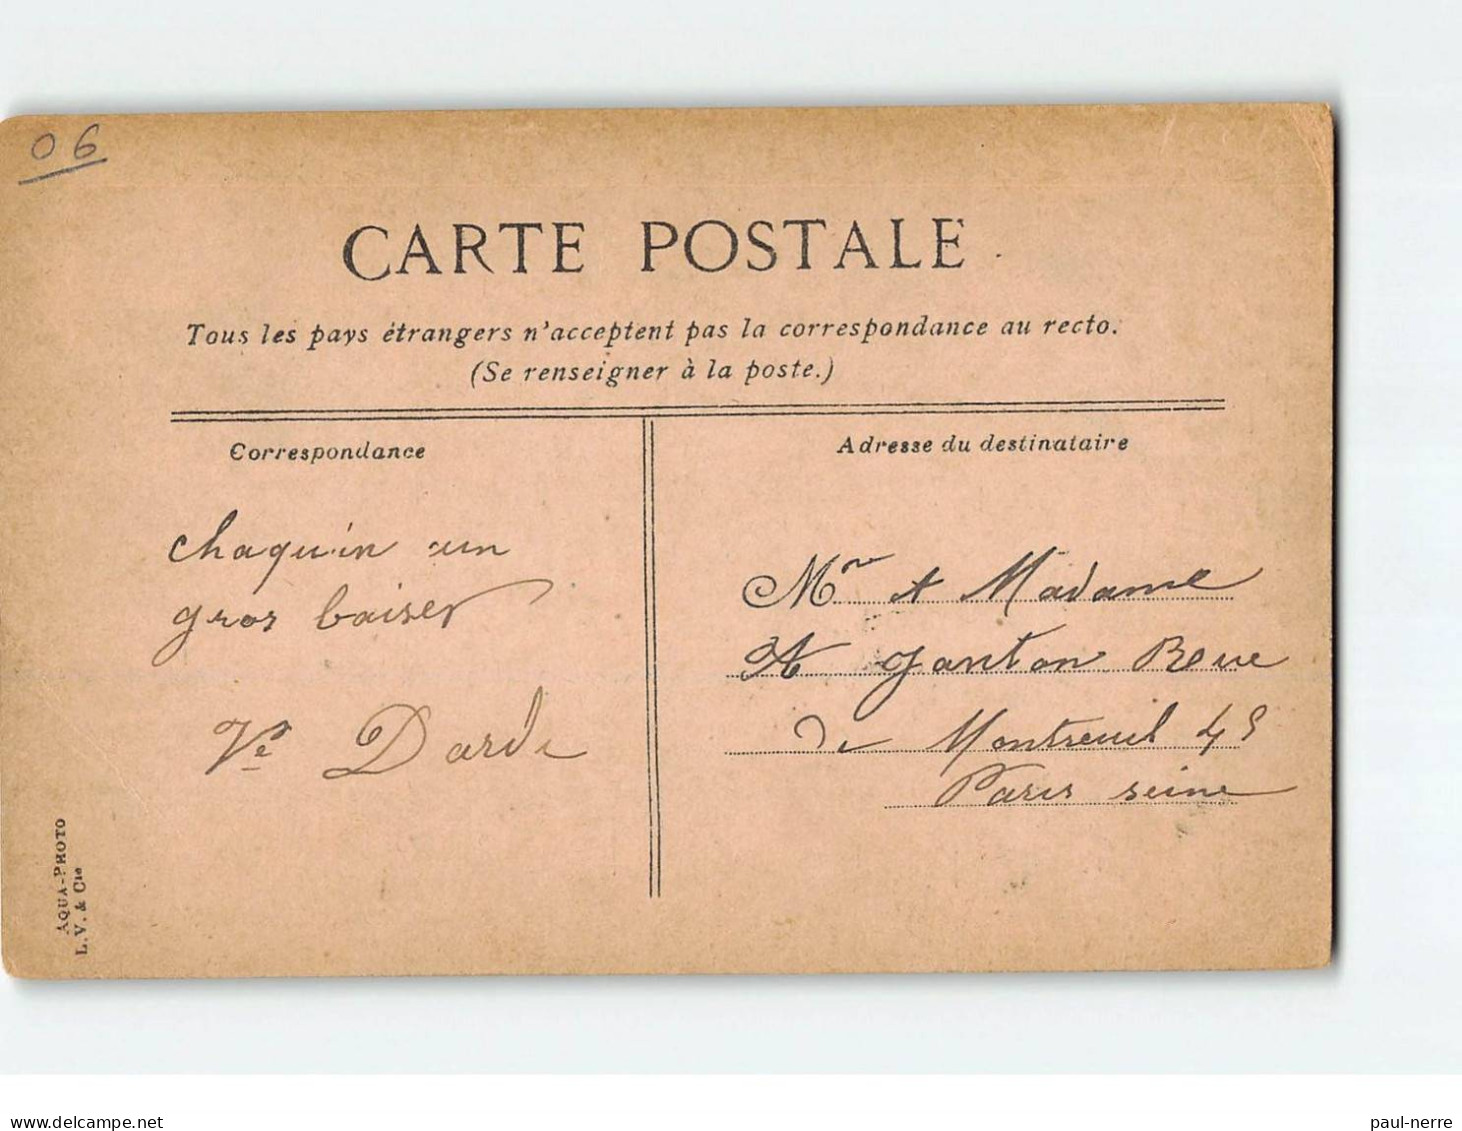 06
CARTE POSTALE
Tous les pays étrangers n'acceptent pas la correspondance au recto.
(Se renseigner à la poste.)
Correspondance
chaquin un
gros baiser
Ve Darde
Adresse du destinataire
Mr et Madame
A ganton Rue
de Montreuil 45
Paris seine
AQUA-PHOTO
L. V. & Cie
paul-nerre